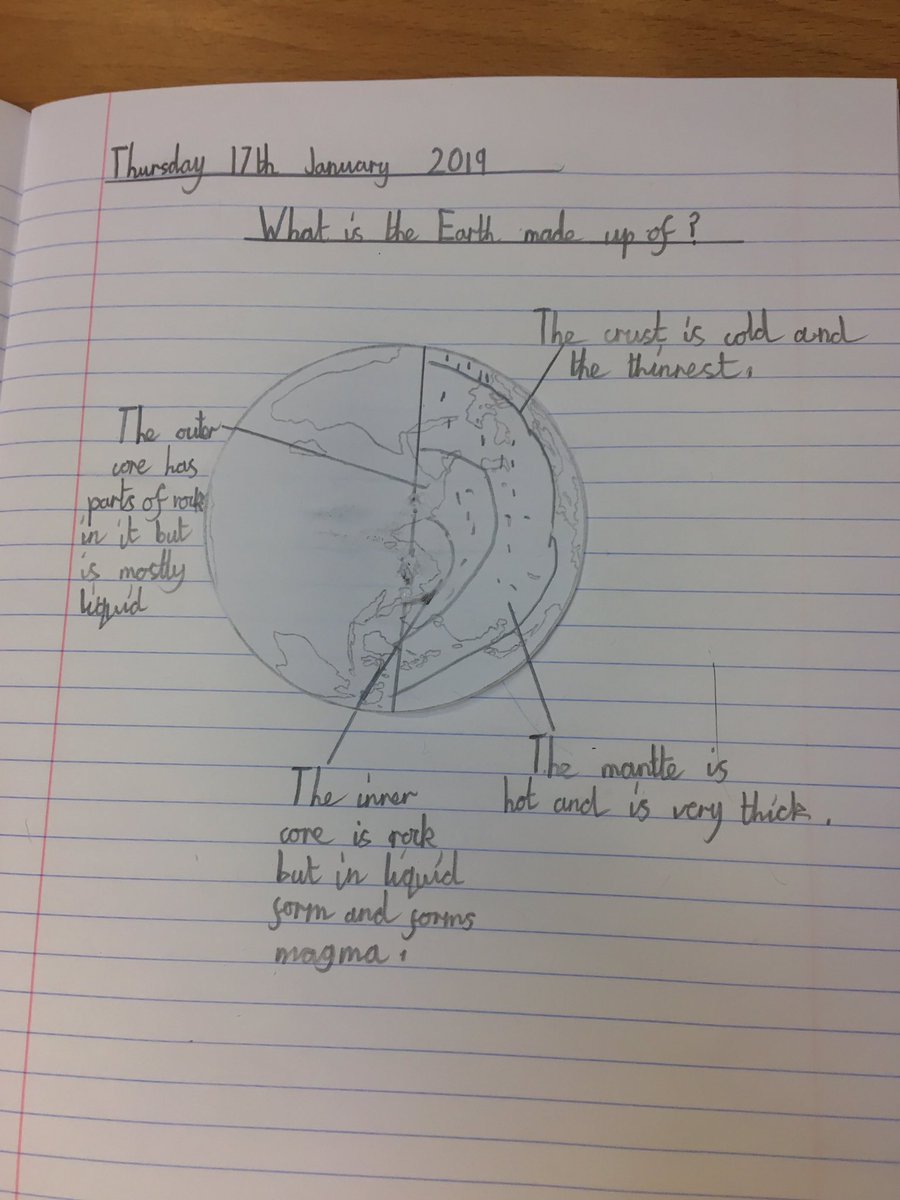 Thursday 17th January 2019
What is the Earth made up of?
The crust is cold and
the thinnest.
The outer
core has
parts of rock
in it but
is mostly
liquid
The mantle is
hot and is very thick.
The inner
core is rock
but in liquid
form and forms
magma.